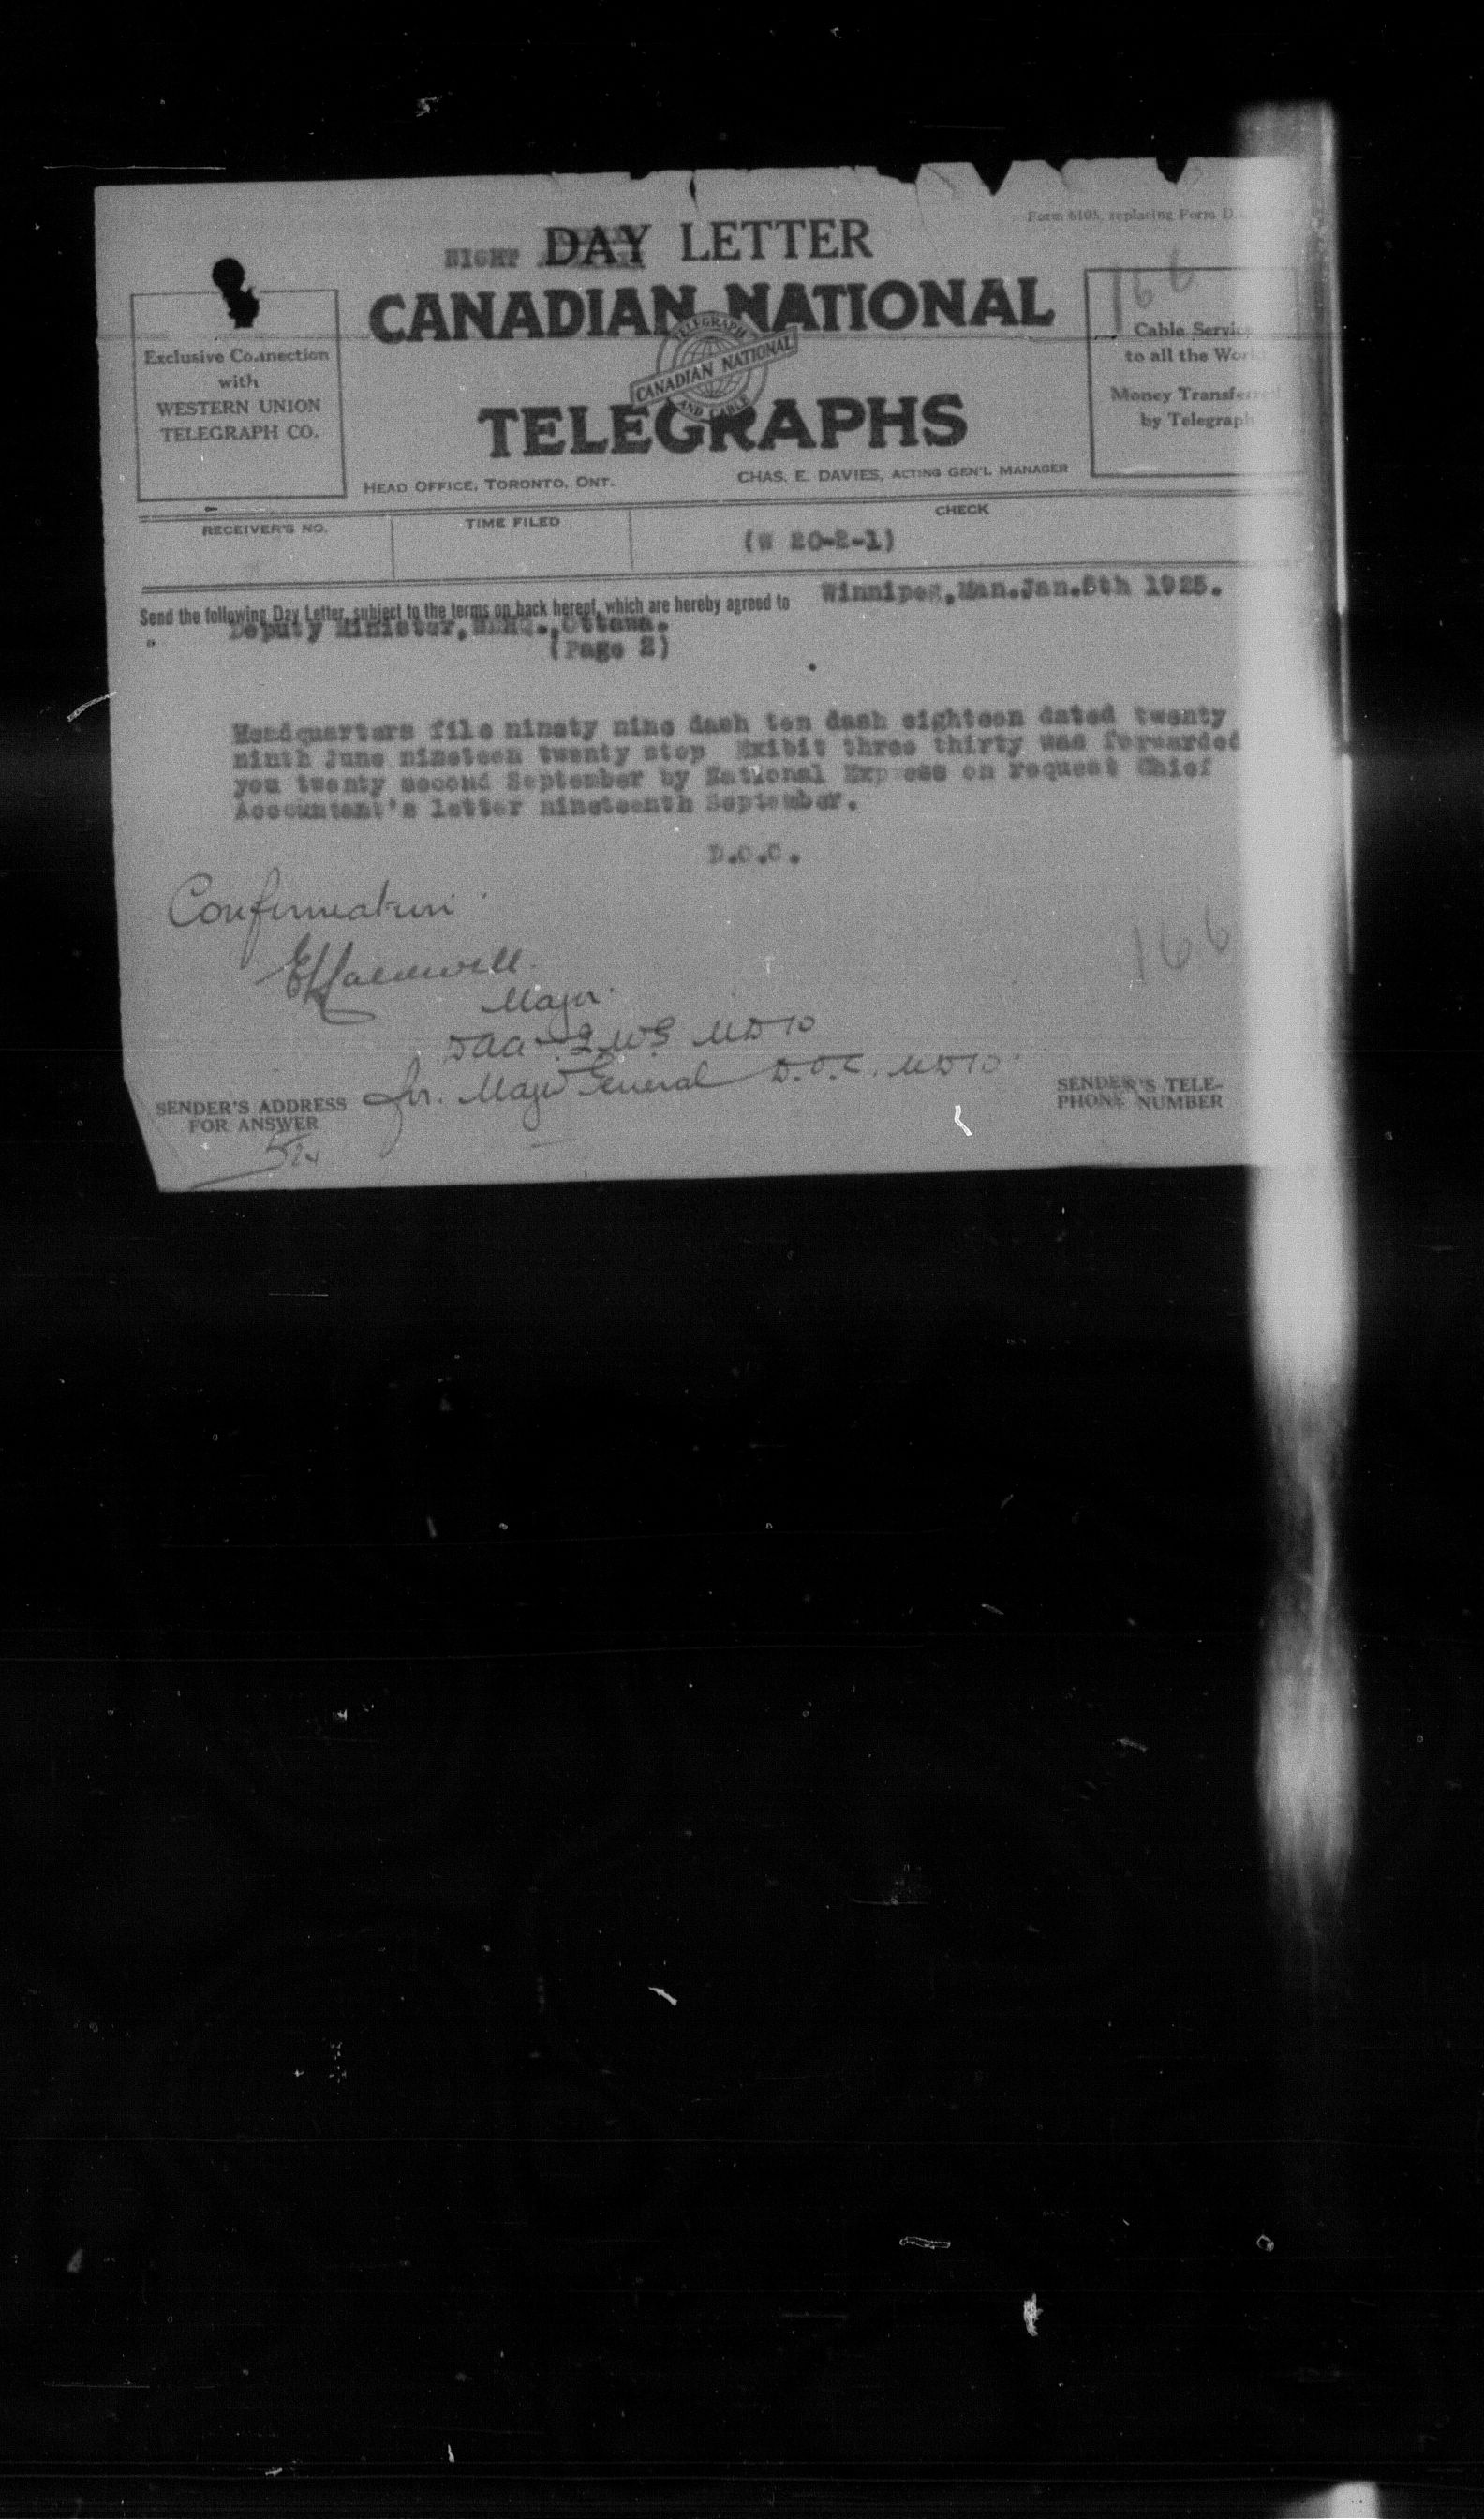 Form 6105, replacing Form D.
NIGHT DAY LETTER
166
CANADIAN NATIONAL
TELEGRAPH
CANADIAN NATIONAL
AND CABLE
TELEGRAPHS
Exclusive Connection
with
WESTERN UNION
TELEGRAPH CO.
Cable Service
to all the World
Money Transferred
by Telegraph
HEAD OFFICE, TORONTO, ONT.
CHAS. E. DAVIES, ACTING GEN'L MANAGER
RECEIVER'S NO.
TIME FILED
CHECK
(W 20-2-1)
Send the following Day Letter, subject to the terms on back hereof, which are hereby agreed to
Winnipeg,Man.Jan.5th 1925.
Deputy Minister, Ottawa.
(Page 2)
Headquarters file ninety nine dash ten dash eighteen dated twenty
ninth June nineteen twenty stop Exibit three thirty was forwarded
you twenty second September by National Express on request Chief
Accountant's letter nineteenth September.
D.O.C.
Confirmation
Major
166
MD10
for. Major General D.O.C. MD10
SENDER'S ADDRESS
FOR ANSWER
SENDER'S TELE-
PHONE NUMBER